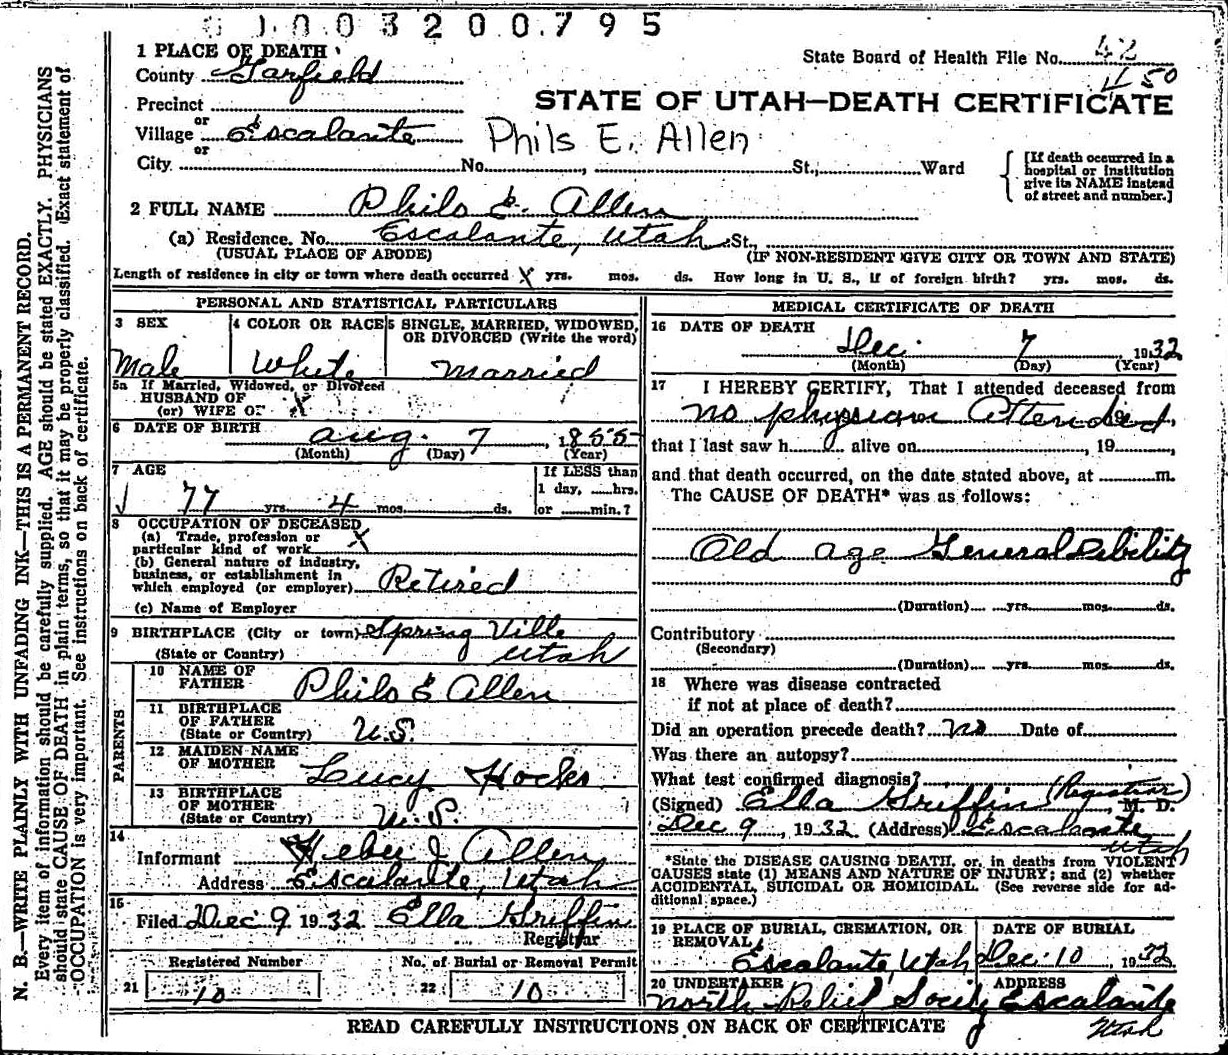 0 1 0 0 3 2 0 0 . 7 9 5
1 PLACE OF DEATH
County Garfield
State Board of Health File No. 42
450
Precinct
or
STATE OF UTAH—DEATH CERTIFICATE
Village Escalante
or
Phils E. Allen
City No. , St., Ward
[If death occurred in a
hospital or institution
give its NAME instead
of street and number.]
2 FULL NAME Philo E. Allen
(a) Residence. No. Escalante, Utah St.,
(USUAL PLACE OF ABODE) (IF NON-RESIDENT GIVE CITY OR TOWN AND STATE)
Length of residence in city or town where death occurred X yrs. mos. ds. How long in U. S., if of foreign birth? yrs. mos. ds.
PERSONAL AND STATISTICAL PARTICULARS
3 SEX
Male
4 COLOR OR RACE
White
5 SINGLE, MARRIED, WIDOWED,
OR DIVORCED (Write the word)
Married
5a If Married, Widowed, or Divorced
HUSBAND OF
(or) WIFE OF X
6 DATE OF BIRTH Aug. 7, 1855
(Month) (Day) (Year)
7 AGE
77 yrs. 4 mos. ds.
If LESS than
1 day, hrs.
or min.?
8 OCCUPATION OF DECEASED
(a) Trade, profession or
particular kind of work X
(b) General nature of industry,
business, or establishment in
which employed (or employer) Retired
(c) Name of Employer
9 BIRTHPLACE (City or town) Spring Ville
(State or Country) Utah
PARENTS
10 NAME OF
FATHER Philo E Allen
11 BIRTHPLACE
OF FATHER
(State or Country) U.S.
12 MAIDEN NAME
OF MOTHER Lucy Hocks
13 BIRTHPLACE
OF MOTHER
(State or Country) U.S.
14
Informant Heber J Allen
Address Escalante, Utah
15
Filed Dec 9 1932 Ella Griffin
Registrar
Registered Number
21 10
No. of Burial or Removal Permit
22 10
MEDICAL CERTIFICATE OF DEATH
16 DATE OF DEATH
Dec. 7 1932
(Month) (Day) (Year)
17 I HEREBY CERTIFY, That I attended deceased from
no physician Attended
that I last saw h alive on , 19
and that death occurred, on the date stated above, at m.
The CAUSE OF DEATH* was as follows:
Old age General Debility
(Duration) yrs. mos. ds.
Contributory
(Secondary)
(Duration) yrs. mos. ds.
18 Where was disease contracted
if not at place of death?
Did an operation precede death? No Date of
Was there an autopsy?
What test confirmed diagnosis?
(Registrar)
(Signed) Ella Griffin, M. D.
Dec 9, 1932 (Address) Escalante
Utah
*State the DISEASE CAUSING DEATH, or, in deaths from VIOLENT
CAUSES state (1) MEANS AND NATURE OF INJURY; and (2) whether
ACCIDENTAL, SUICIDAL OR HOMICIDAL. (See reverse side for ad-
ditional space.)
19 PLACE OF BURIAL, CREMATION, OR
REMOVAL
Escalante, Utah
DATE OF BURIAL
Dec. 10, 1932
20 UNDERTAKER
North Relief Society
ADDRESS
Escalante
Utah
READ CAREFULLY INSTRUCTIONS ON BACK OF CERTIFICATE
N. B.—WRITE PLAINLY WITH UNFADING INK—THIS IS A PERMANENT RECORD.
Every item of information should be carefully supplied. AGE should be stated EXACTLY. PHYSICIANS
should state CAUSE OF DEATH in plain terms, so that it may be properly classified. Exact statement of
OCCUPATION is very important. See instructions on back of certificate.